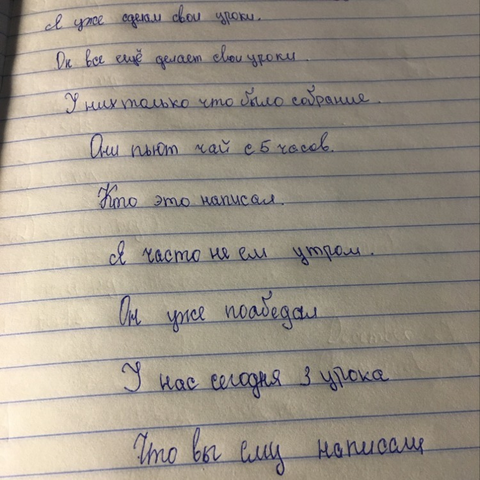 Я уже сделал свои уроки.
Он все ещё делает свои уроки.
У них только что было собрание.
Они пьют чай с 5 часов.
Кто это написал.
Я часто не ем утром.
Он уже поабедал
У нас сегодня 3 урока
Что вы ему написали